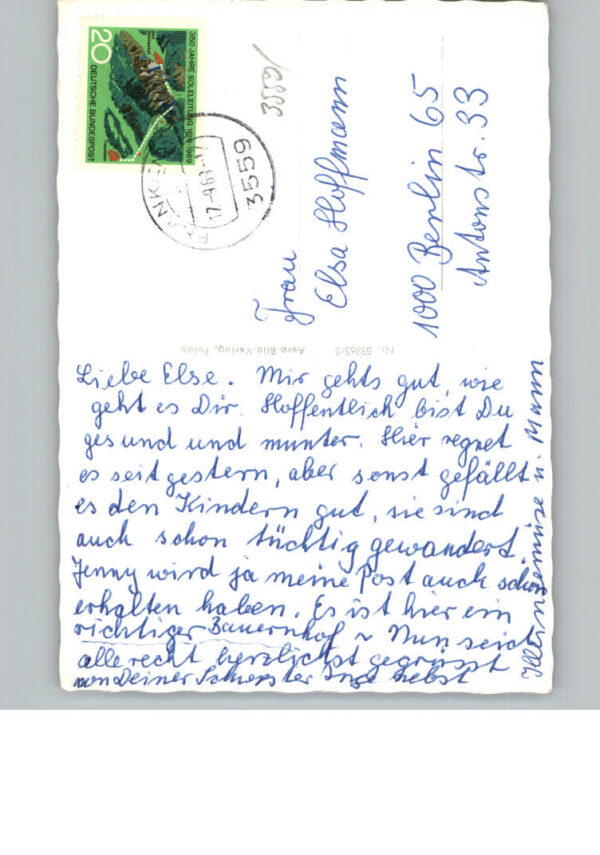 20
350 JAHRE SOLELEITUNG 1619-1969
DEUTSCHE BUNDESPOST
3559
FRANKE
3559/
Frau
Elsa Hoffmann
1000 Berlin 65
Antonstr. 33
Nr. 55865/5 Aero-Bild-Verlag, Fulda
Liebe Else. Mir gehts gut, wie
geht es Dir. Hoffentlich bist Du
gesund und munter. Hier regnet
es seit gestern, aber sonst gefällt
es den Kindern gut, sie sind
auch schon tüchtig gewandert.
Jenny wird ja meine Post auch schon
erhalten haben. Es ist hier ein
richtiger Bauernhof ~ Nun seid
alle recht herzlichst gegrüsst
von Deiner Schwester Inge nebst
u. Mann